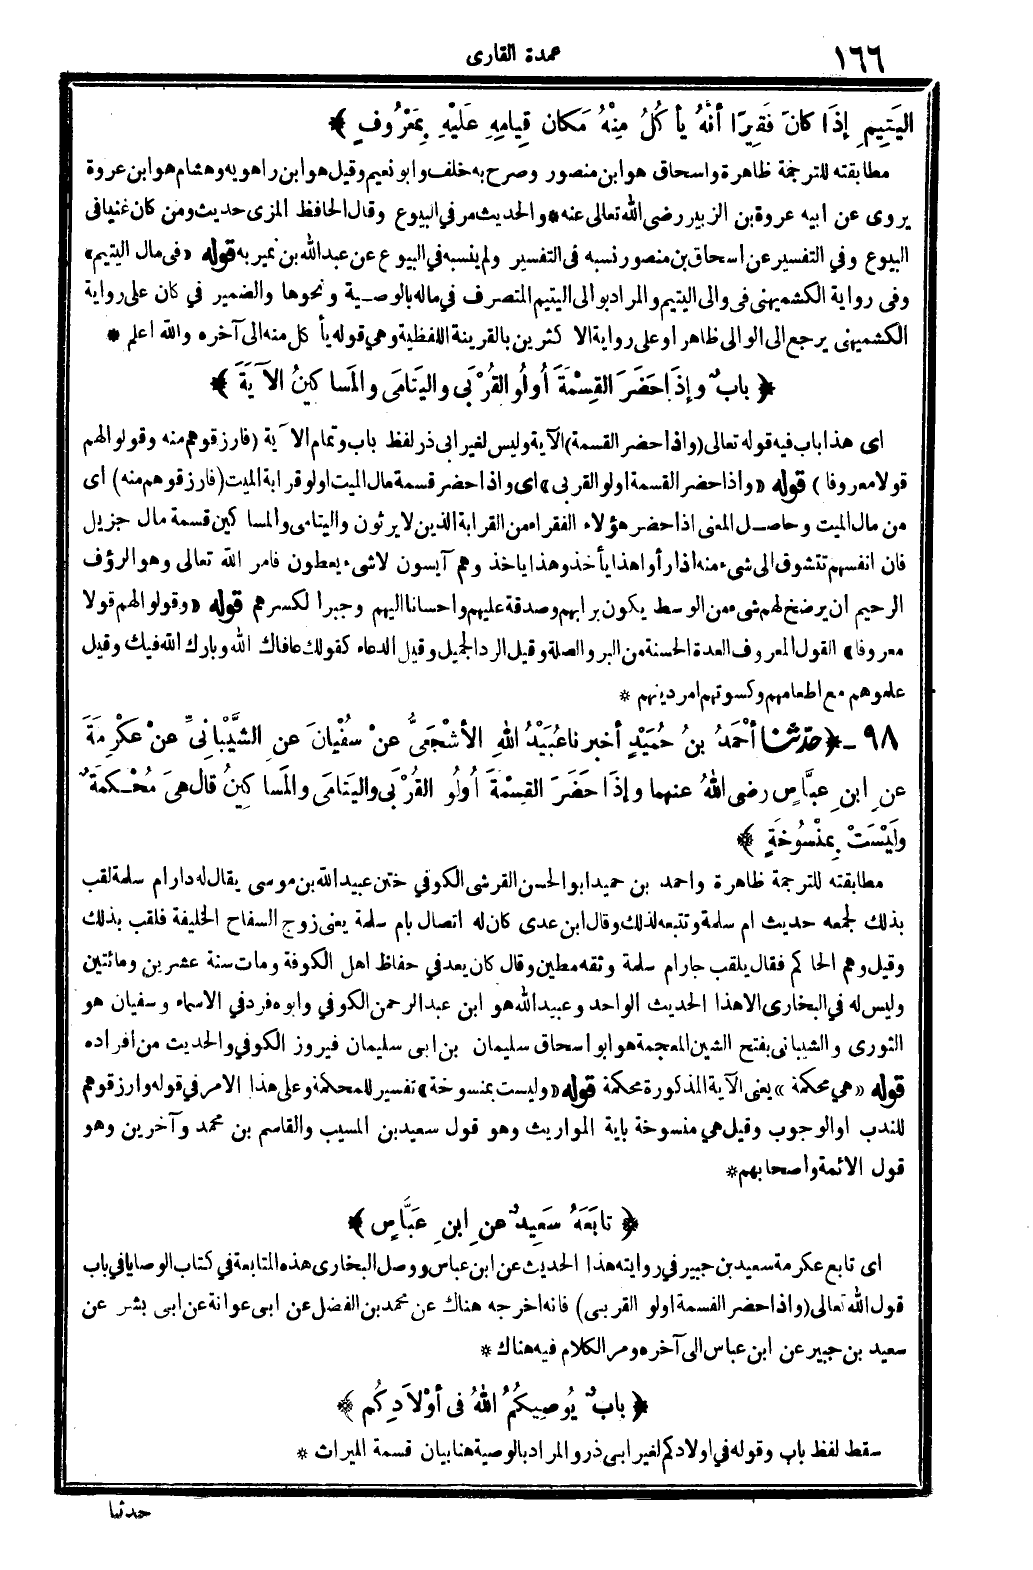 ١٦٦
عمدة القارى
اليَتِيمِ إِذَا كانَ فَقِيرًا أنَّهُ يأكُلُ مِنْهُ مَكانَ قِيامِهِ عَلَيْهِ بِمَعْرُوفٍ ﴾
مطابقته للترجمة ظاهرة واسحاق هو ابن منصور وصرح به خلف وابو نعيم وقيل هو ابن راهويه وهشام هو ابن عروة
يروى عن ابيه عروة بن الزبير رضى الله تعالى عنه * والحديث مر في البيوع وقال الحافظ المزى حديث ومن كان غنيا فى
البيوع وفي التفسير عن اسحاق بن منصور نسبه فى التفسير ولم ينسبه في البيوع عن عبد الله بن نمير به قوله «فى مال اليتيم»
وفى رواية الكشميهنى فى والى اليتيم والمراد بوالى اليتيم المتصرف في ماله بالوصية ونحوها والضمير في كان على رواية
الكشميهنى يرجع الى الوالى ظاهر او على رواية الاكثرين بالقرينة اللفظية وهي قوله يأكل منه الى آخره والله اعلم *
﴿ بابٌ وإذَا حَضَرَ القِسْمَةَ أُولُو القُرْبَى واليَتامَى والمَساكِينُ الآيَةَ ﴾
اى هذا باب فيه قوله تعالى (واذا حضر القسمة) الآية وليس لغير ابى ذر لفظ باب وتمام الآية (فارزقوهم منه وقولوا لهم
قولا معروفا) قوله «واذا حضر القسمة اولو القربى» اى واذا حضر قسمة مال الميت اولو قرابة الميت (فارزقوهم منه) اى
من مال الميت وحاصل المعنى اذا حضر هؤلاء الفقراء من القرابة الذين لا يرثون واليتامى والمساكين قسمة مال جزيل
فان انفسهم تتشوق الى شىء منه اذا رأوا هذا يأخذ وهذا ياخذ وهم آيسون لاشىء يعطون فامر الله تعالى وهو الرؤف
الرحيم ان يرضخ لهم شىء من الوسط يكون برا بهم وصدقة عليهم واحسانا اليهم وجبرا لكسرهم قوله «وقولوا لهم قولا
معروفا» القول المعروف العدة الحسنة من البر والصلة وقيل الرد الجميل وقيل الدعاء كقولك عافاك الله وبارك الله فيك وقيل
علموهم مع اطعامهم وكسوتهم امر دينهم *
٩٨ - ﴿ حَدَّثَنَا أحْمَدُ بنُ حُمَيْدٍ أخبرنا عُبَيْدُ اللهِ الأشْجَعِىُّ عنْ سُفْيانَ عنِ الشَّيْبانِىِّ عنْ عكْرِمَةَ
عنِ ابنِ عبَّاسٍ رضى اللهُ عنهما وإذَا حَضَرَ القِسْمَةَ أُولُو القُرْبَى واليَتامَى والمَساكِينُ قال هىَ مُحْكَمَةٌ
ولَيْسَتْ بِمَنْسُوخَةٍ ﴾
مطابقته للترجمة ظاهرة واحمد بن حميد ابو الحسن القرشى الكوفي ختن عبيد الله بن موسى يقال له دار ام سلمة لقب
بذلك لجمعه حديث ام سلمة وتتبعه لذلك وقال ابن عدى كان له اتصال بام سلمة يعنى زوج السفاح الخليفة فلقب بذلك
وقيل وهم الحاكم فقال يلقب جار ام سلمة وثقه مطين وقال كان يعد في حفاظ اهل الكوفة ومات سنة عشرين ومائتين
وليس له في البخارى الا هذا الحديث الواحد وعبيد الله هو ابن عبد الرحمن الكوفي وابوه فرد في الاسماء وسفيان هو
الثورى والشيبانى بفتح الشين المعجمة هو ابو اسحاق سليمان بن ابى سليمان فيروز الكوفي والحديث من افراده
قوله «هي محكمة» يعنى الآية المذكورة محكمة قوله «وليست بمنسوخة» تفسير للمحكمة وعلى هذا الامر في قوله وارزقوهم
للندب او الوجوب وقيل هي منسوخة باية المواريث وهو قول سعيد بن المسيب والقاسم بن محمد وآخرين وهو
قول الائمة واصحابهم *
﴿ تابَعَهُ سَعِيدٌ عنِ ابنِ عَبَّاسٍ ﴾
اى تابع عكرمة سعيد بن جبير في روايته هذا الحديث عن ابن عباس ووصل البخارى هذه المتابعة في كتاب الوصايا في باب
قول الله تعالى (واذا حضر القسمة اولو القربى) فانه اخرجه هناك عن محمد بن الفضل عن ابى عوانة عن ابى بشر عن
سعيد بن جبير عن ابن عباس الى آخره ومر الكلام فيه هناك *
﴿ بابٌ يُوصِيكُمُ اللهُ فى أوْلاَدِكُم ﴾
سقط لفظ باب وقوله في اولادكم لغير ابى ذر والمراد بالوصية هنا بيان قسمة الميراث *
حدثنا